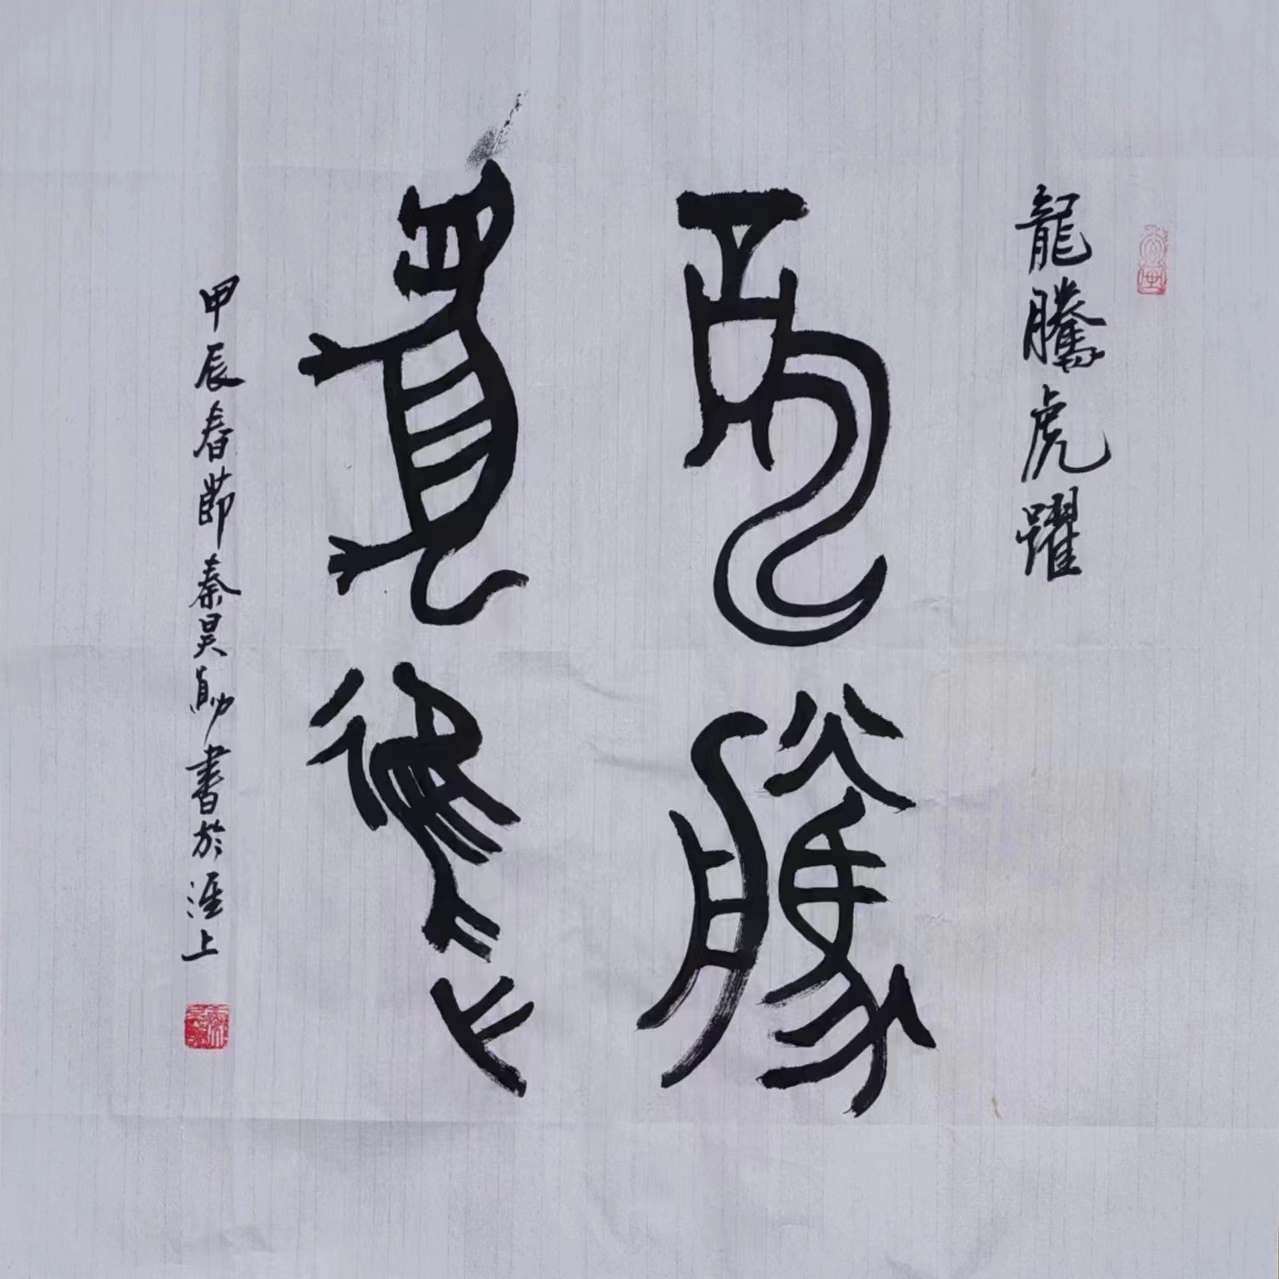 龍騰虎躍
龍騰
虎躍
甲辰春節秦昊勛書於淮上